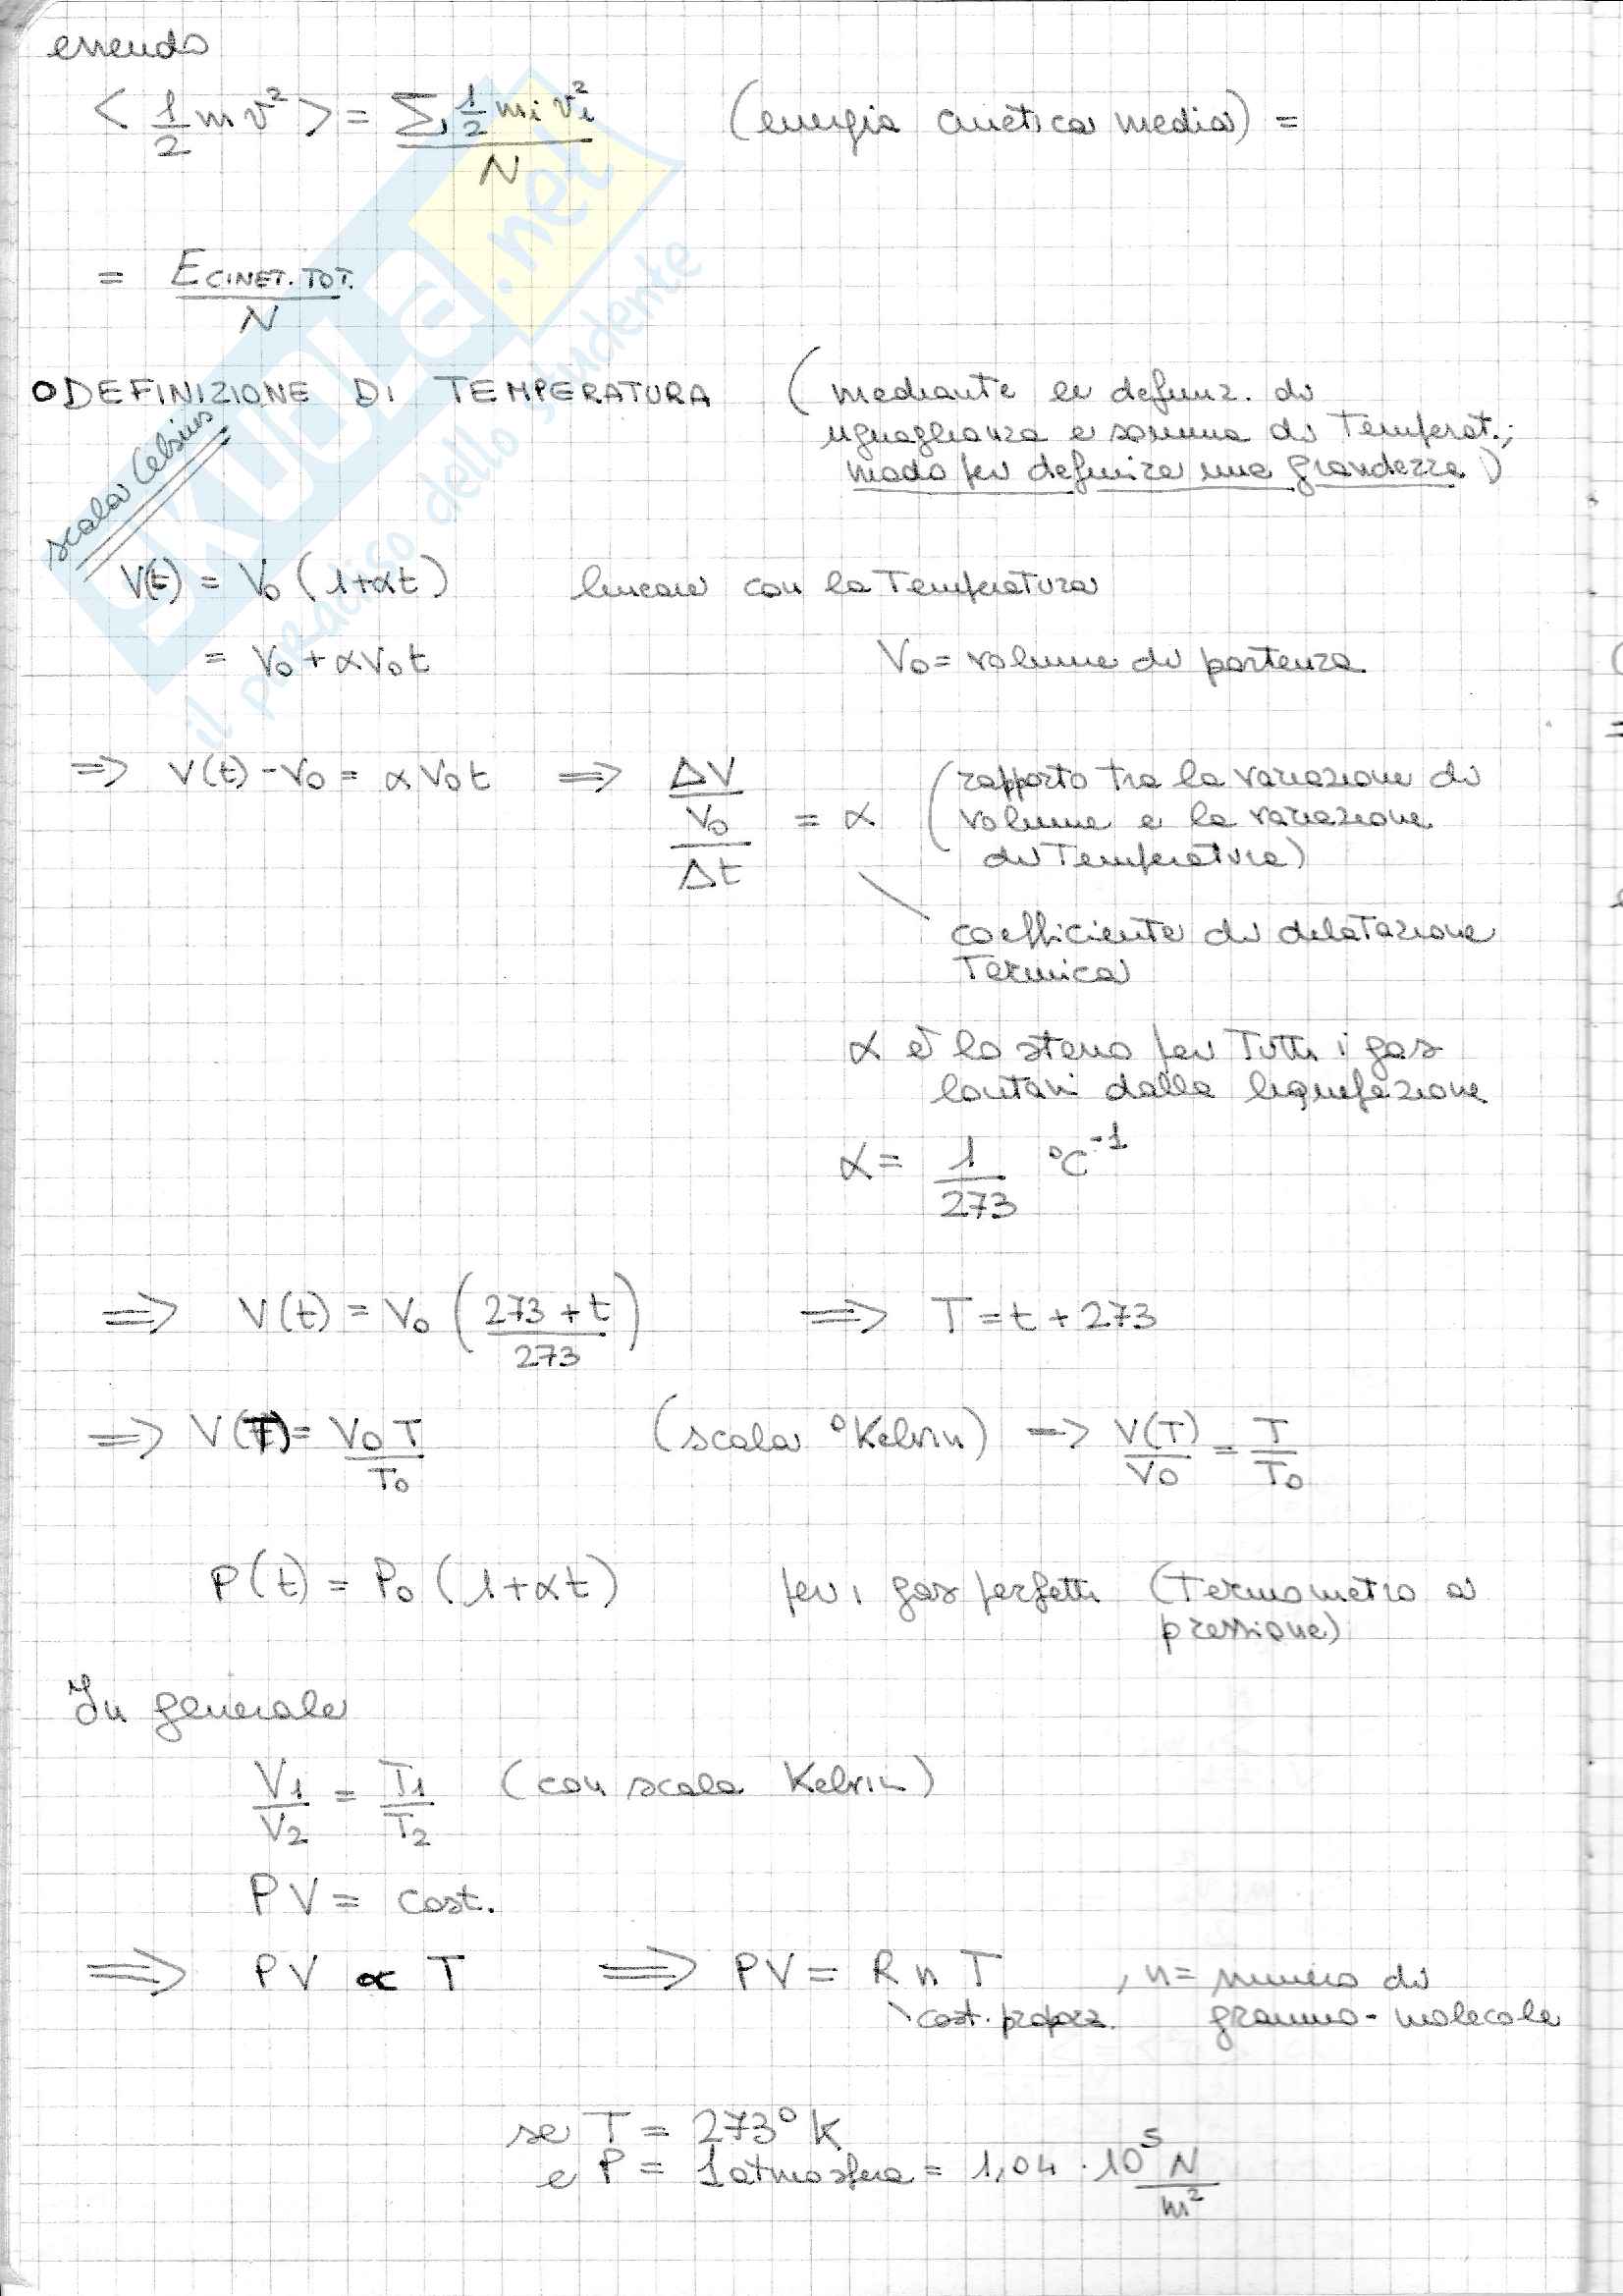 essendo
< 1/2 m v² > = Σi 1/2 mi vi² / N (energia cinetica media) =
= E CINET. TOT. / N
O DEFINIZIONE DI TEMPERATURA (mediante la definiz. di
uguaglianza e somma di Temperat.;
modo per definire una grandezza)
scala Celsius
V(t) = V0 (1+αt) lineare con la Temperatura
= V0 + αV0t V0 = volume di partenza
=> V(t) - V0 = αV0t => ΔV/V0 / Δt = α (rapporto tra la variazione di
volume e la variazione
di Temperatura)
coefficiente di dilatazione
Termica
α è lo stesso per Tutti i gas
lontani dalla liquefazione
α = 1/273 °C⁻¹
=> V(t) = V0 (273 + t / 273) => T = t + 273
=> V(T) = V0 T / T0 (scala °Kelvin) => V(T)/V0 = T/T0
P(t) = P0 (1+αt) per i gas perfetti (Termometro a
pressione)
In generale
V1/V2 = T1/T2 (con scala Kelvin)
PV = cost.
=> PV ∝ T => PV = R n T , n = numero di
cost. proporz. grammo-molecole
se T = 273° K
e P = 1 atmosfera = 1,04 · 10⁵ N/m²
SKUOLA.net
il paradiso dello studente